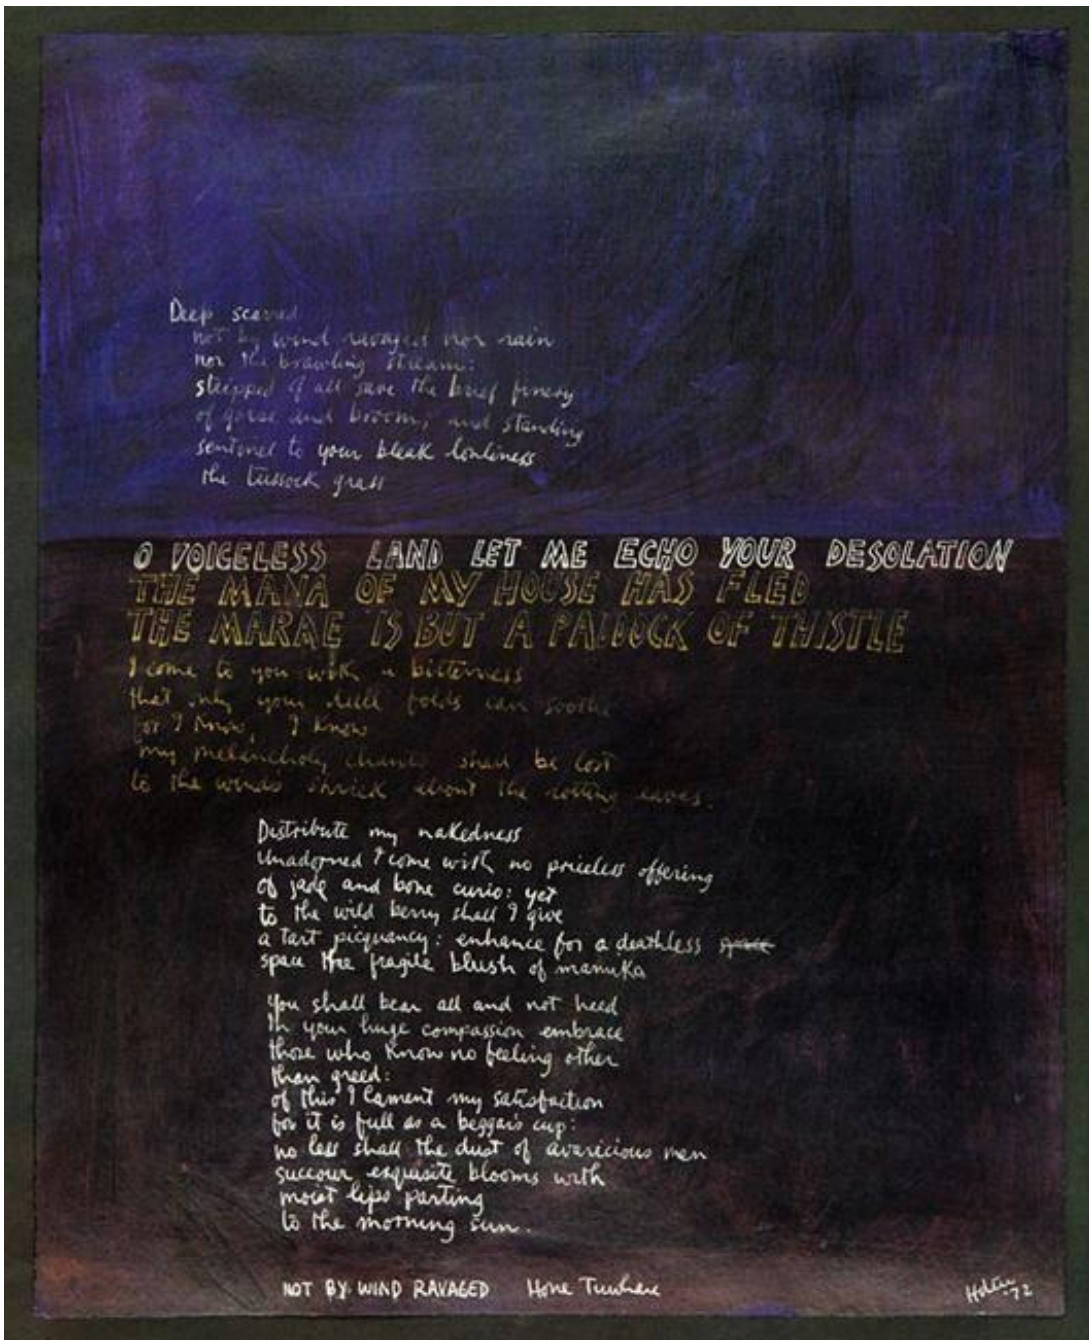 Deep scarred
not by wind ravaged nor rain
nor the brawling stream:
stripped of all save the brief finery
of gorse and broom; and standing
sentinel to your bleak lonliness
the tussock grass
O VOICELESS LAND LET ME ECHO YOUR DESOLATION
THE MANA OF MY HOUSE HAS FLED
THE MARAE IS BUT A PADDOCK OF THISTLE
I come to you with a bitterness
that only your dull folds can soothe
for I know, I know
my melancholy chants shall be lost
to the winds shriek about the rotting eaves.
Distribute my nakedness
Unadorned I come with no priceless offering
of jade and bone curio: yet
to the wild berry shall I give
a tart picquancy: enhance for a deathless space
space the fragile blush of manuka
You shall bear all and not heed
In your huge compassion embrace
those who know no feeling other
than greed:
of this I lament my satisfaction
for it is full as a beggar's cup:
no less shall the dust of avaricious men
succour exquisite blooms with
moist lips parting
to the morning sun.
NOT BY WIND RAVAGED Hone Tuwhare
Hotere '72